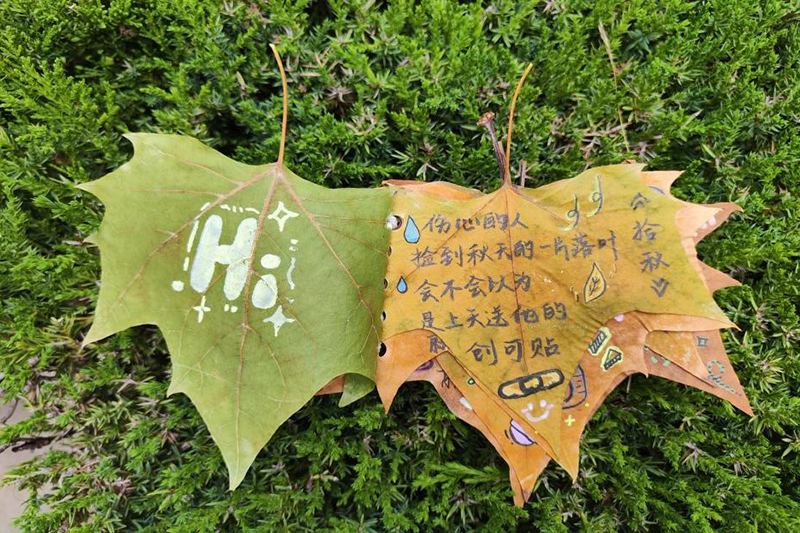 Hi
伤心的人
捡到秋天的一片落叶
会不会以为
是上天送他的
创可贴
拾秋